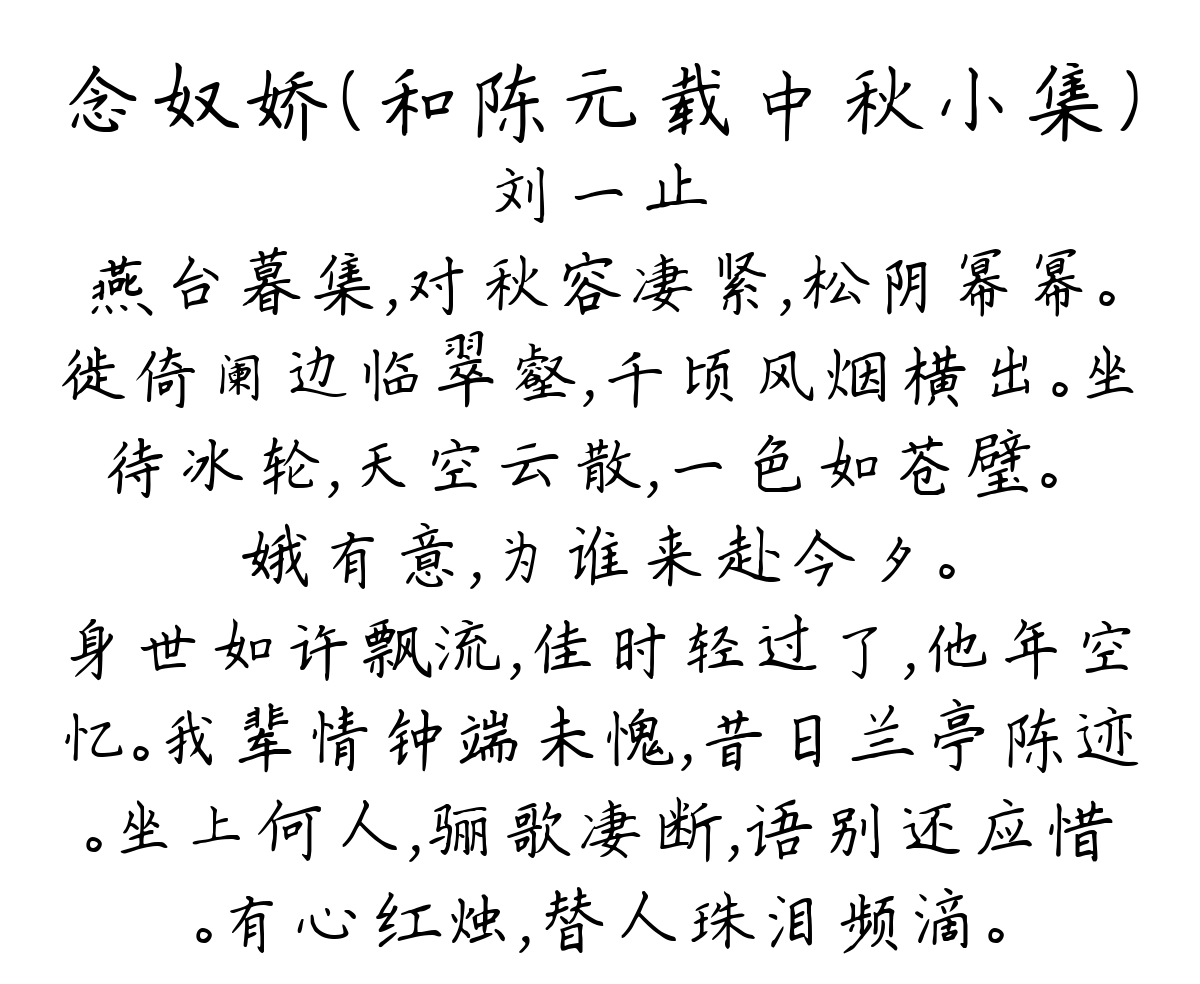 念奴娇(和陈元载中秋小集)
刘一止
燕台暮集,对秋容凄紧,松阴幂幂。
徙倚阑边临翠壑,千顷风烟横出。坐
待冰轮,天空云散,一色如苍璧。
娥有意,为谁来赴今夕。
身世如许飘流,佳时轻过了,他年空
忆。我辈情钟端未愧,昔日兰亭陈迹
。坐上何人,骊歌凄断,语别还应惜
。有心红烛,替人珠泪频滴。